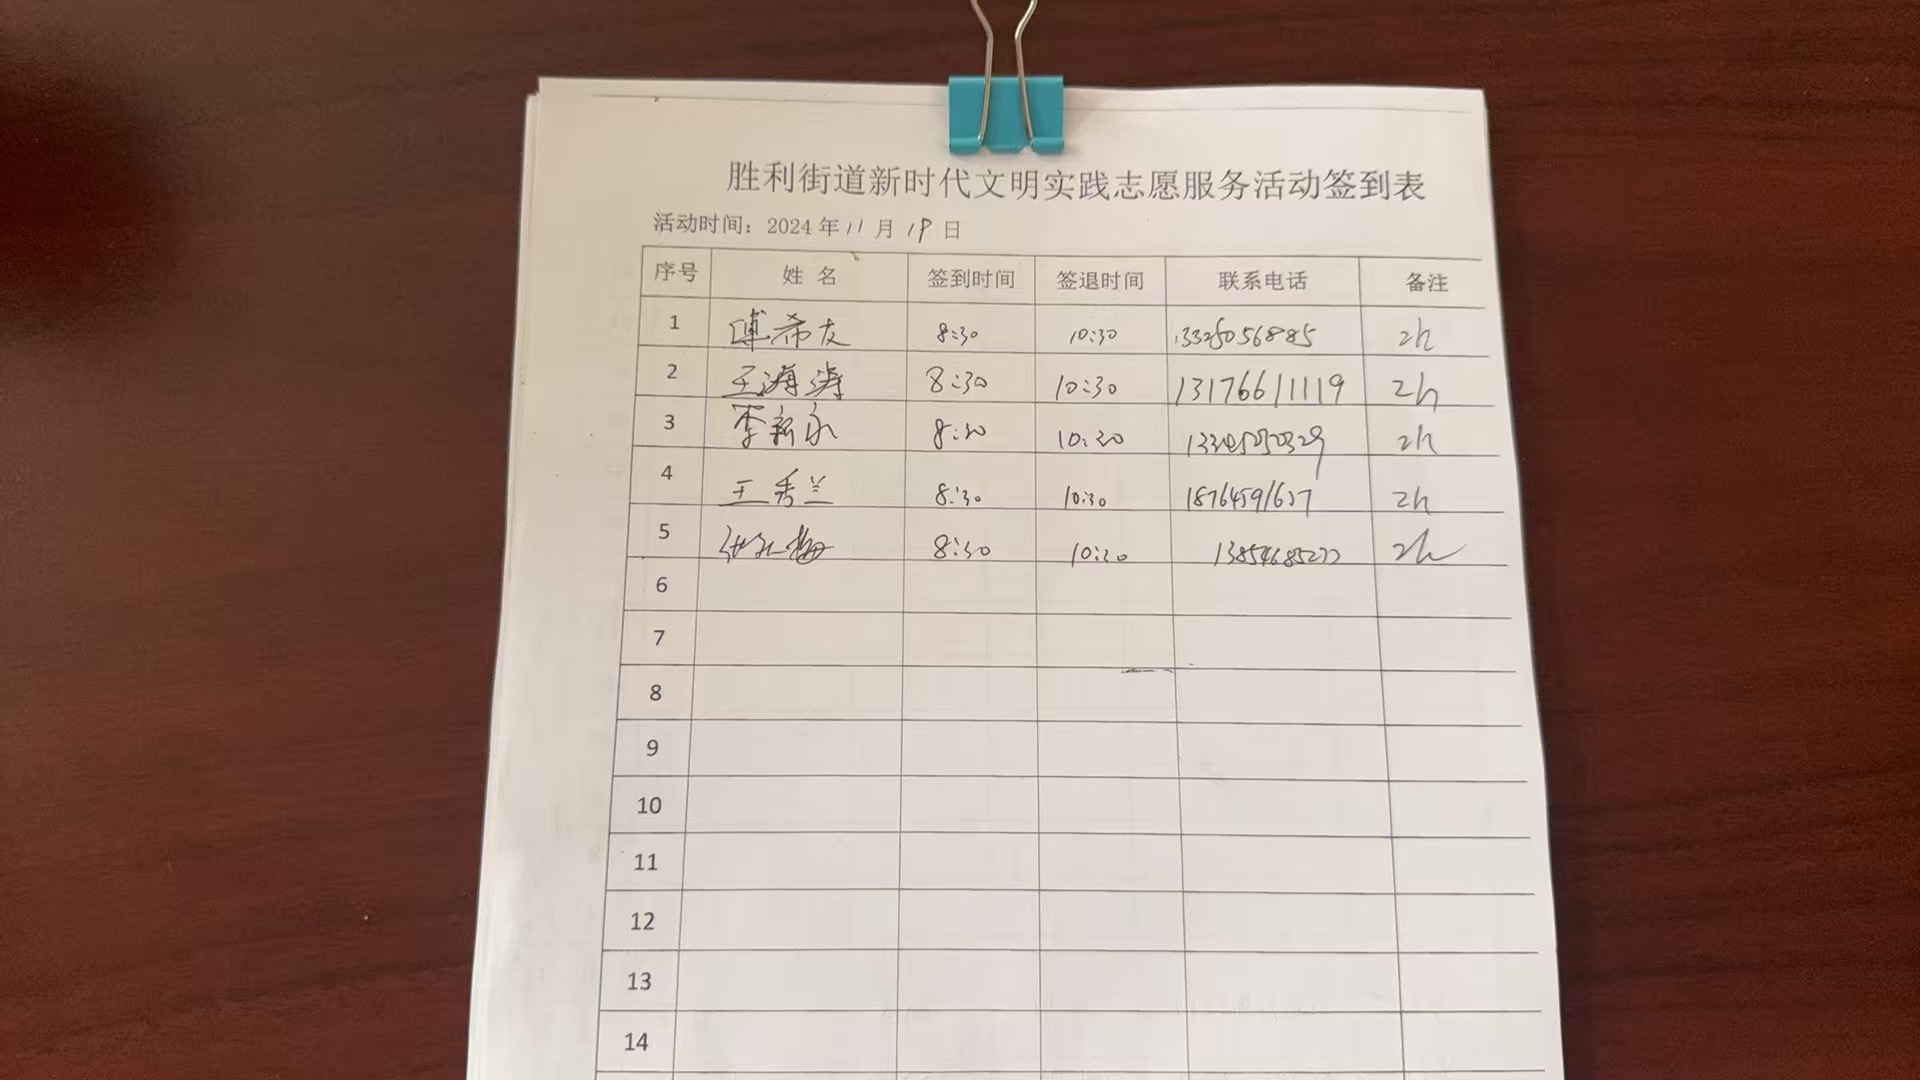 胜利街道新时代文明实践志愿服务活动签到表
活动时间：2024年11月19日
序号 姓名 签到时间 签退时间 联系电话 备注
1 傅希友 8:30 10:30 13325056885 2h
2 王海涛 8:30 10:30 13176611119 2h
3 李新永 8:30 10:30 2h
4 王秀兰 8:30 10:30 18764591637 2h
5 8:30 10:30 2h
6
7
8
9
10
11
12
13
14